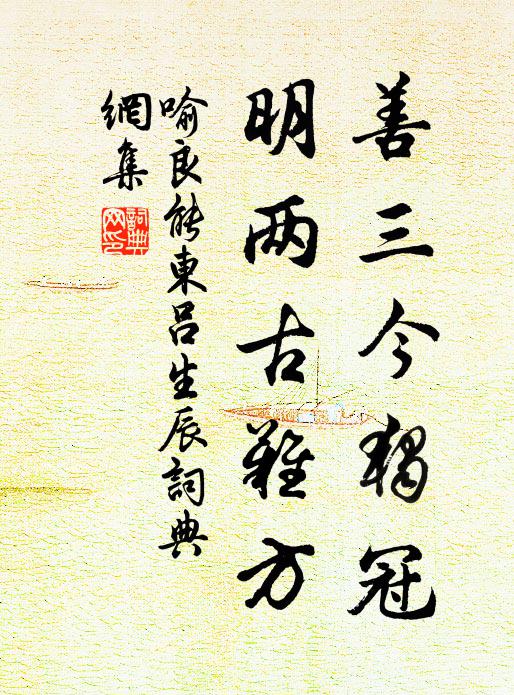 善三今獨冠
明两古難方
喻良能東吕生辰詞典
網集
詞典
网印